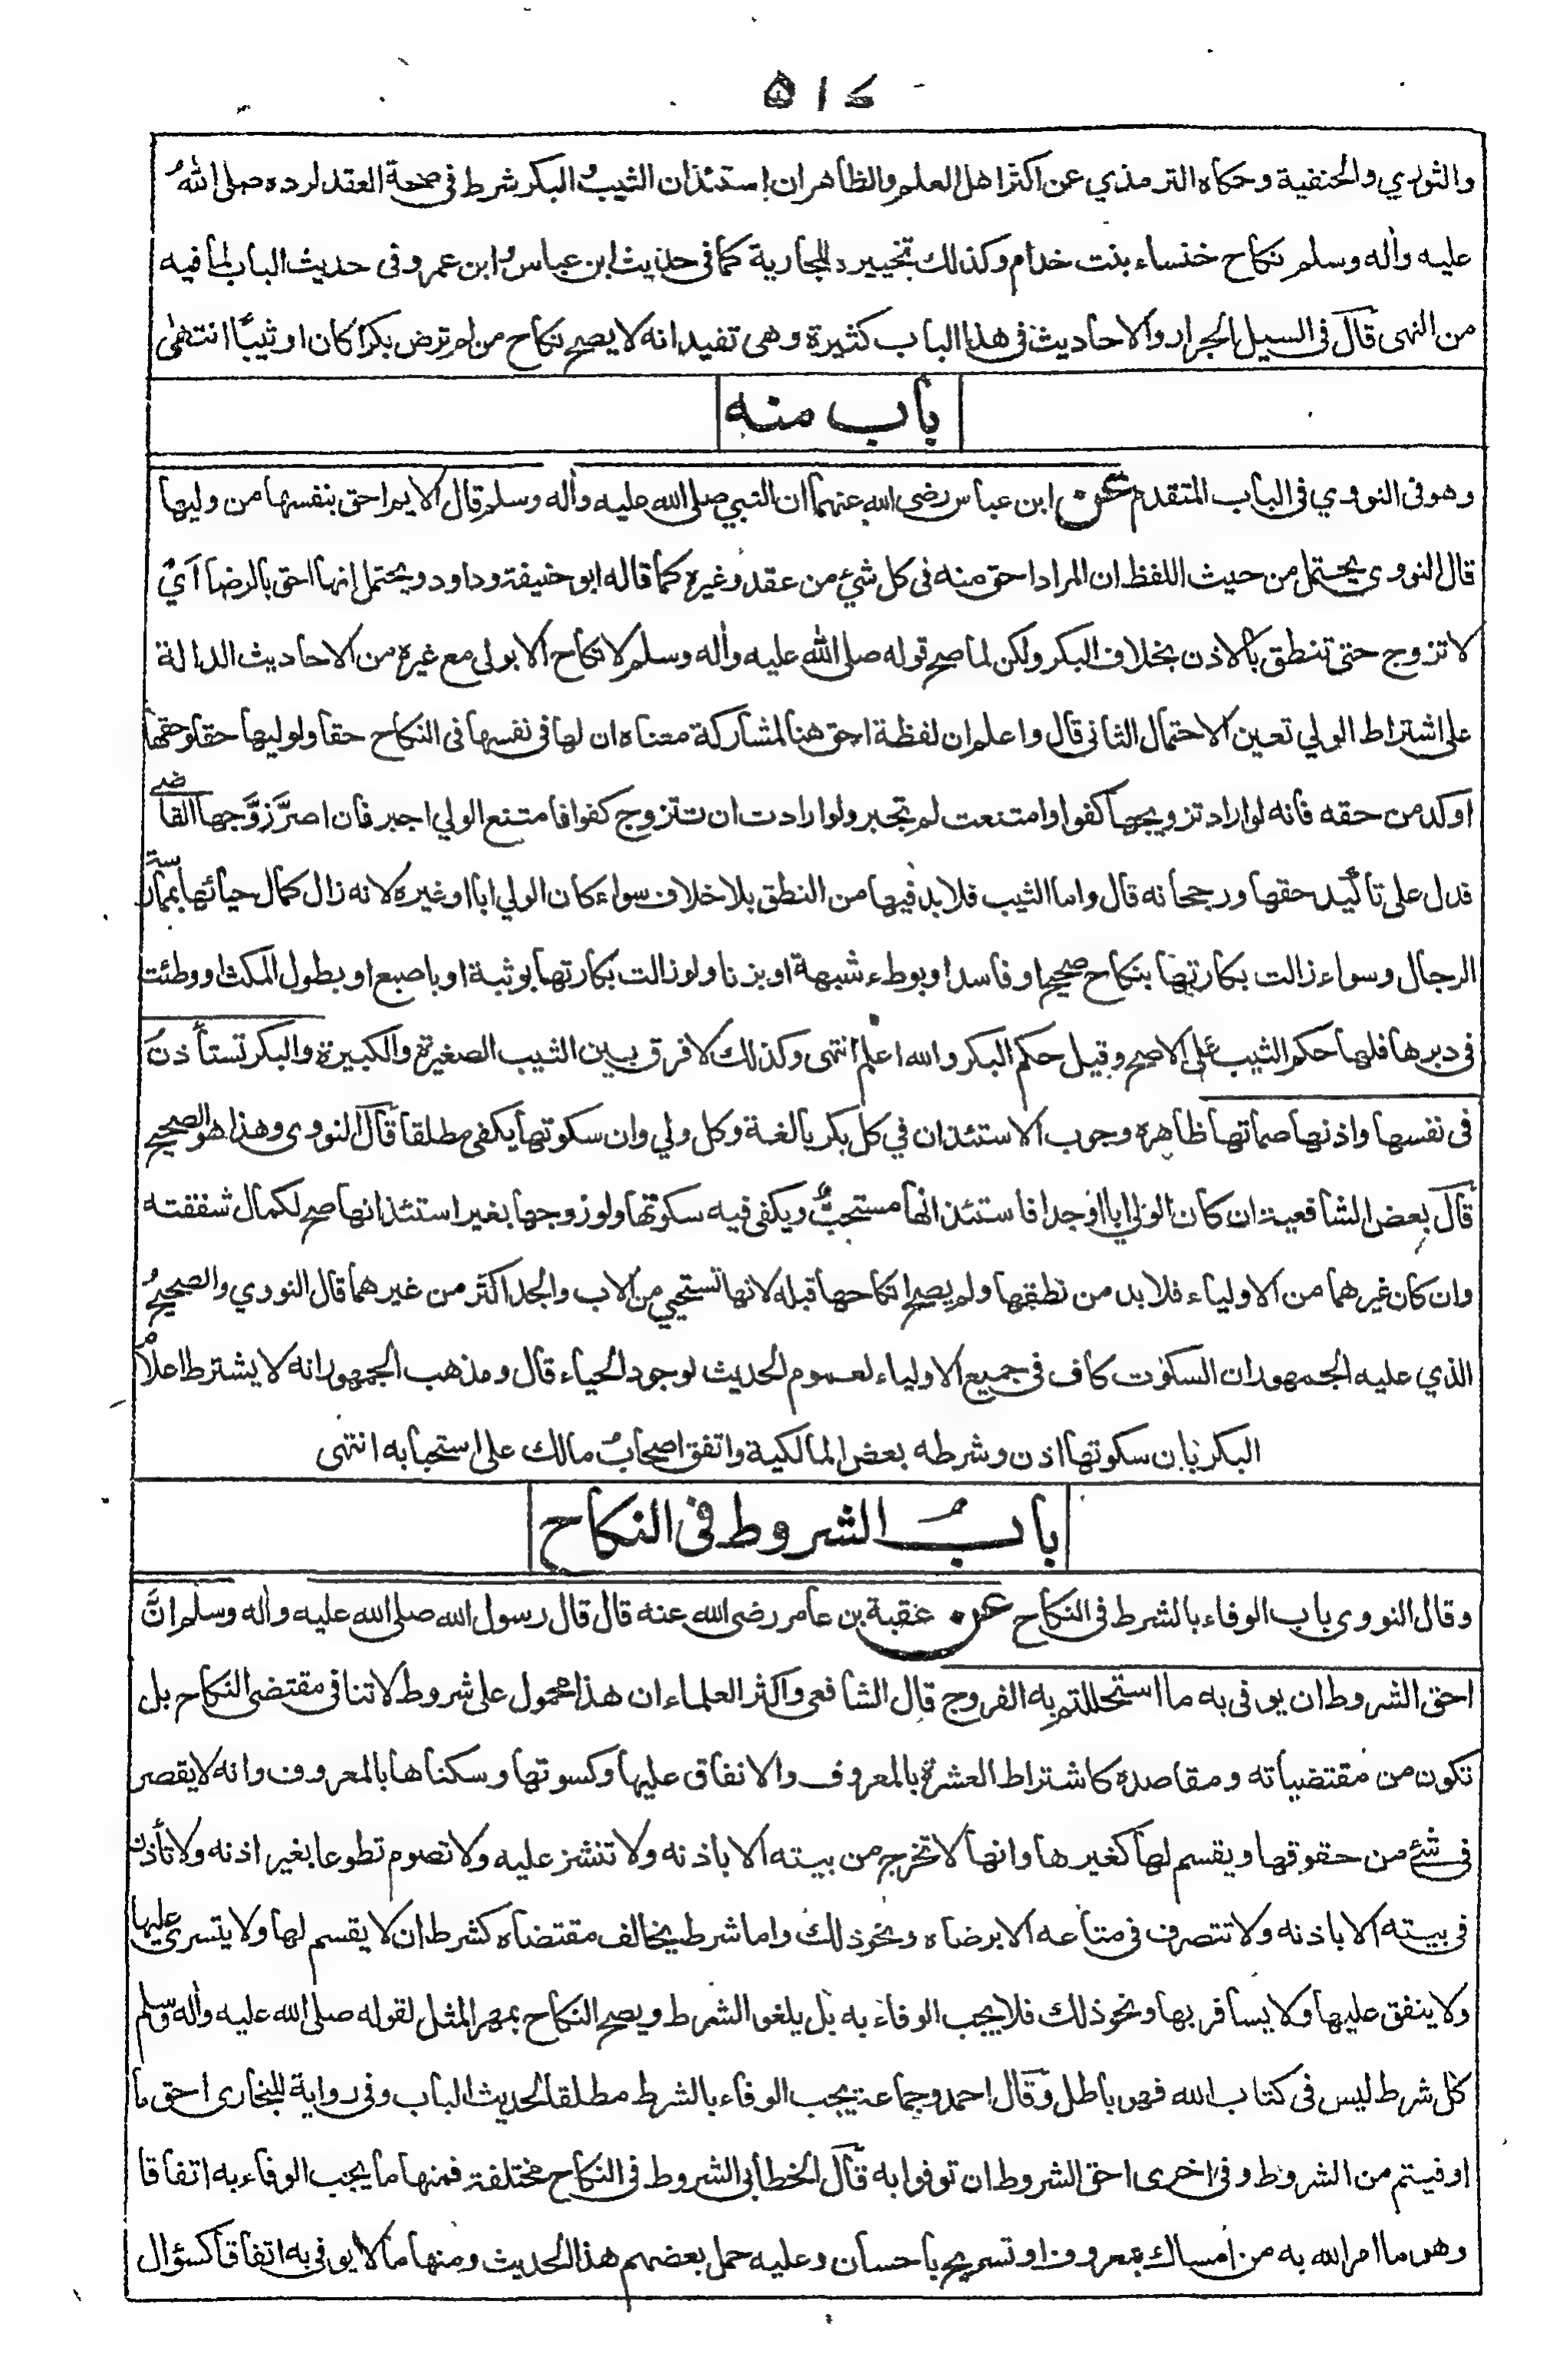 ٥١٤
والثوري والحنفية وحكاه الترمذي عن اكثر اهل العلم والظاهر ان استئذان الثيب والبكر شرط في صحة العقد لرده صلى الله
عليه واٰله وسلم نكاح خنساء بنت خدام وكذلك تخييره للجارية كما في حديث ابن عباس وابن عمر وفى حديث الباب لما فيه
من النهى قال فى السيل الجرار والاحاديث فى هذا الباب كثيرة وهى تفيد انه لا يصح نكاح من لم ترض بكرا كان او ثيبًا انتهى
باب منه
وهو فى النووي فى الباب المتقدم عن ابن عباس رضى الله عنهما ان النبي صلى الله عليه واٰله وسلم قال الايم احق بنفسها من وليها
قال النووى يحتمل من حيث اللفظ ان المراد احق منه فى كل شئ من عقد وغيره كما قاله ابو حنيفة وداود ويحتمل انها احق بالرضا اي
لا تزوج حتى تنطق بالاذن بخلاف البكر ولكن لما صح قوله صلى الله عليه واٰله وسلم لا نكاح الا بولى مع غيره من الاحاديث الدالة
على اشتراط الولي تعين الاحتمال الثانى قال واعلم ان لفظة احق هنا للمشاركة معناه ان لها فى نفسها فى النكاح حقا ولوليها حقا وحقها
اوكد من حقه فانه لو اراد تزويجها كفوا وامتنعت لم تجبر ولو ارادت ان تتزوج كفوا فامتنع الولي اجبر فان اصرَّ زوَّجها القاضى
فدل على تأكيد حقها ورجحانه قال واما الثيب فلا بد فيها من النطق بلا خلاف سواء كان الولي ابا او غيره لانه زال كمال حيائها بممارسة
الرجال وسواء زالت بكارتها بنكاح صحيح او فاسد او بوطء شبهة او بزنا ولو زالت بكارتها بوثبة او باصبع او بطول المكث او وطئت
فى دبرها فلها حكم الثيب على الاصح وقيل حكم البكر والله اعلم انتهى وكذلك لا فرق بين الثيب الصغيرة والكبيرة والبكر تستأذن
فى نفسها واذنها صماتها ظاهره وجوب الاستئذان في كل بكر بالغة وكل ولي وان سكوتها يكفى مطلقا قال النووى وهذا هو الصحيح
قال بعض الشافعية ان كان الولي ابا او جدا فاستئذانها مستحب ويكفى فيه سكوتها ولو زوجها بغير استئذانها صح لكمال شفقته
وان كان غيرهما من الاولياء فلا بد من نطقها ولم يصح انكاحها قبله لانها تستحيي من الاب والجد اكثر من غيرهما قال النووي والصحيح
الذي عليه الجمهور ان السكوت كاف فى جميع الاولياء لعموم الحديث لوجود الحياء قال ومذهب الجمهور انه لا يشترط اعلام
البكر بان سكوتها اذن وشرطه بعض المالكية واتفق اصحاب مالك على استحبابه انتهى
باب الشروط فى النكاح
وقال النووى باب الوفاء بالشرط فى النكاح عن عقبة بن عامر رضى الله عنه قال قال رسول الله صلى الله عليه واٰله وسلم انَّ
احق الشروط ان يوفى به ما استحللتم به الفروج قال الشافعى واكثر العلماء ان هذا محمول على شروط لا تنافى مقتضى النكاح بل
تكون من مقتضياته ومقاصده كاشتراط العشرة بالمعروف والانفاق عليها وكسوتها وسكناها بالمعروف وانه لا يقصر
فى شئ من حقوقها ويقسم لها كغيرها وانها لا تخرج من بيته الا باذنه ولا تنشز عليه ولا تصوم تطوعا بغير اذنه ولا تأذن
فى بيته الا باذنه ولا تتصرف فى متاعه الا برضاه ونحو ذلك واما شرط يخالف مقتضاه كشرط ان لا يقسم لها ولا يتسرى عليها
ولا ينفق عليها ولا يسافر بها ونحو ذلك فلا يجب الوفاء به بل يلغو الشرط ويصح النكاح بمهر المثل لقوله صلى الله عليه واٰله وسلم
كل شرط ليس فى كتاب الله فهو باطل وقال احمد وجماعة يجب الوفاء بالشرط مطلقا لحديث الباب وفى رواية للبخارى احق ما
اوفيتم من الشروط وفى اخرى احق الشروط ان توفوا به قال الخطابى الشروط فى النكاح مختلفة فمنها ما يجب الوفاء به اتفاقا
وهو ما امر الله به من امساك بمعروف او تسريح باحسان وعليه حمل بعضهم هذا الحديث ومنها ما لا يوفى به اتفاقا كسؤال